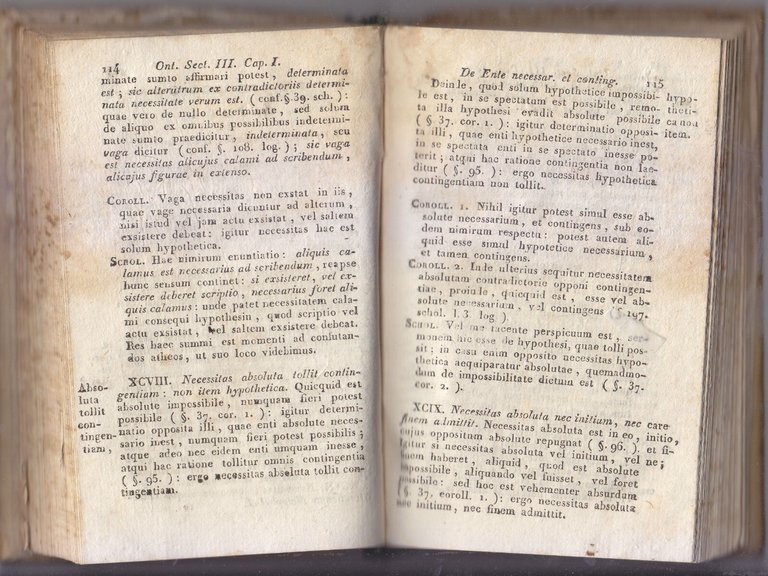 114 Ont. Sect. III. Cap. I.
minate sumto affirmari potest, determinata
est; sic alterutrum ex contradictoriis determi-
nata necessitate verum est. (conf. §. 39. sch.):
quae vero de nullo determinate, sed solum
de aliquo ex omnibus possibilibus indetermi-
nate sumto praedicitur, indeterminata, seu
vaga dicitur (conf. §. 108. log.); sic vaga
est necessitas alicujus calami ad scribendum,
alicujus figurae in extenso.
COROLL. Vaga necessitas non exstat in iis,
quae vage necessaria dicuntur ad alterum,
nisi istud vel jam actu exsistat, vel saltem
exsistere debeat: igitur necessitas haec est
solum hypothetica.
SCHOL. Hac nimirum enuntiatio: aliquis ca-
lamus est necessarius ad scribendum, reapse
hunc sensum continet: si exsisteret, vel ex-
sistere deberet scriptio, necessarius foret ali-
quis calamus: unde patet necessitatem cala-
mi consequi hypothesin, quod scriptio vel
actu exsistat, vel saltem exsistere debeat.
Res haec summi est momenti ad confutan-
dos atheos, ut suo loco videbimus.
Abso-
luta
tollit
con-
tingen-
tiam,
XCVIII. Necessitas absoluta tollit contin-
gentiam: non item hypothetica. Quicquid est
absolute impossibile, numquam fieri potest
possibile (§. 37. cor. 1.): igitur determi-
natio opposita illi, quae enti absolute neces-
sario inest, numquam fieri potest possibilis;
atque adeo nec eidem enti umquam inesse,
atqui hac ratione tollitur omnis contingentia
(§. 95.): ergo necessitas absoluta tollit con-
tingentiam.
De Ente necessar. et conting. 115
Deinde, quod solum hypothetice impossibi-
le est, in se spectatum est possibile, remo-
ta illa hypothesi evadit absolute possibile
(§. 37. cor. 1.): igitur determinatio opposi-
ta illi, quae enti hypothetice necessario inest,
in se spectata enti in se spectato inesse po-
terit; atqui hac ratione contingentia non lae-
ditur (§. 95.): ergo necessitas hypothetica
contingentiam non tollit.
hypo-
theti-
ca non
item.
COROLL. 1. Nihil igitur potest simul esse ab-
solute necessarium, et contingens, sub eo-
dem nimirum respectu: potest autem ali-
quid esse simul hypotetice necessarium,
et tamen contingens.
COROLL. 2. Inde ulterius sequitur necessitatem
absolutam contradictorie opponi contingen-
tiae, proinde, quicquid est, esse vel ab-
solute necessarium, vel contingens (§. 197.
schol. l. 3. log.)
SCHOL. Vel me tacente perspicuum est, ser-
monem hic esse de hypothesi, quae tolli pos-
sit; in casu enim opposito necessitas hypo-
thetica aequiparatur absolutae, quemadmo-
dum de impossibilitate dictum est (§. 37.
cor. 2.).
XCIX. Necessitas absoluta nec initium, nec
finem admittit. Necessitas absoluta est in eo,
cujus oppositum absolute repugnat (§. 96.).
Igitur si necessitas absoluta vel initium, vel
finem haberet, aliquid, quod est absolute
impossibile, aliquando vel fuisset, vel foret
possibile: sed hoc est vehementer absurdum
(§. 37. coroll. 1.): ergo necessitas absoluta
nec initium, nec finem admittit.
care
initio,
et fi-
ne;